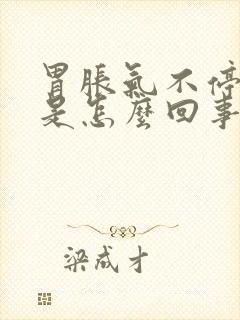 胃脹氣不停
是怎麼回事
梁成才